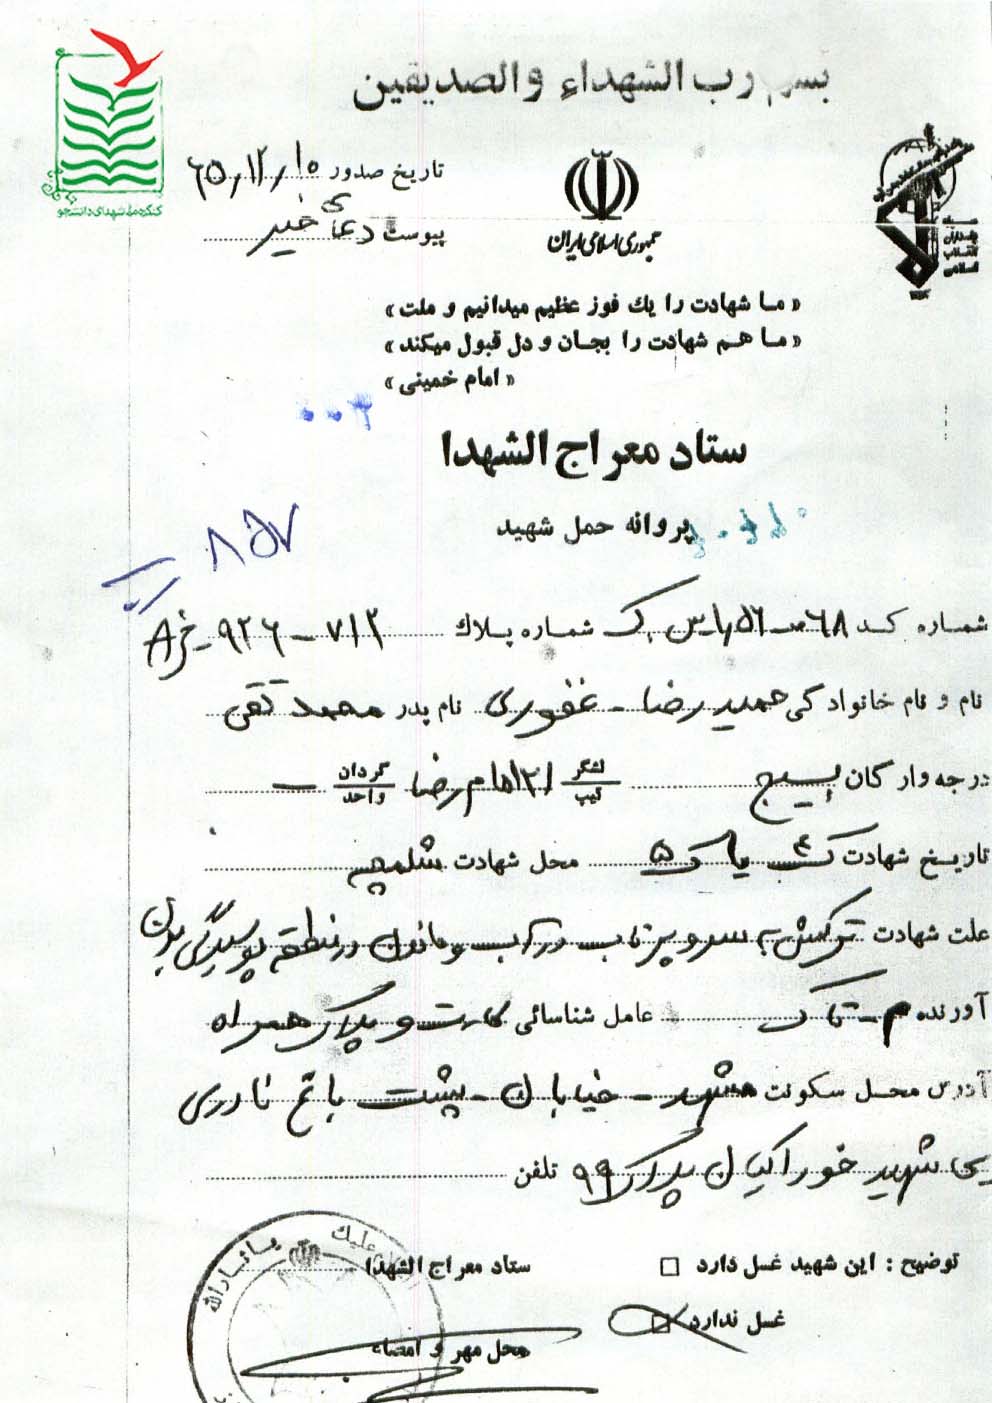 بسم رب الشهداء والصديقين
تاریخ صدور ۶۵٫۱۲٫۱۰
پیوست دعای خیر
کنگره ملی شهدای دانشجو
جمهوری اسلامی ایران
سپاه پاسداران انقلاب اسلامی
«ما شهادت را یك فوز عظیم میدانیم و ملت»
«ما هم شهادت را بجان و دل قبول میکند»
«امام خمینی»
ستاد معراج الشهدا
پروانه حمل شهید
۸۵۷
شماره کد شماره پلاك ۷۱۳ - ۹۲۶
نام و نام خانوادگی حمید رضا - غفوری نام پدر محمد تقی
درجه وارگان بسیج لشگر تیپ ۲۱ امام رضا گردان واحد -
تاریخ شهادت ک ۴ یا ک ۵ محل شهادت شلمچه
علت شهادت ترکش به سر و پرتاب در آب و ماندن در منطقه پوسیدگی بدن
آورنده عامل شناسائی کارت و پلاک همراه
آدرس محل سکونت مشهد - خیابان - پشت باغ نادری
شهید خوراکیان پلاک ۹۹ تلفن
توضیح : این شهید غسل دارد ستاد معراج الشهدا
غسل ندارد
محل مهر و امضاء